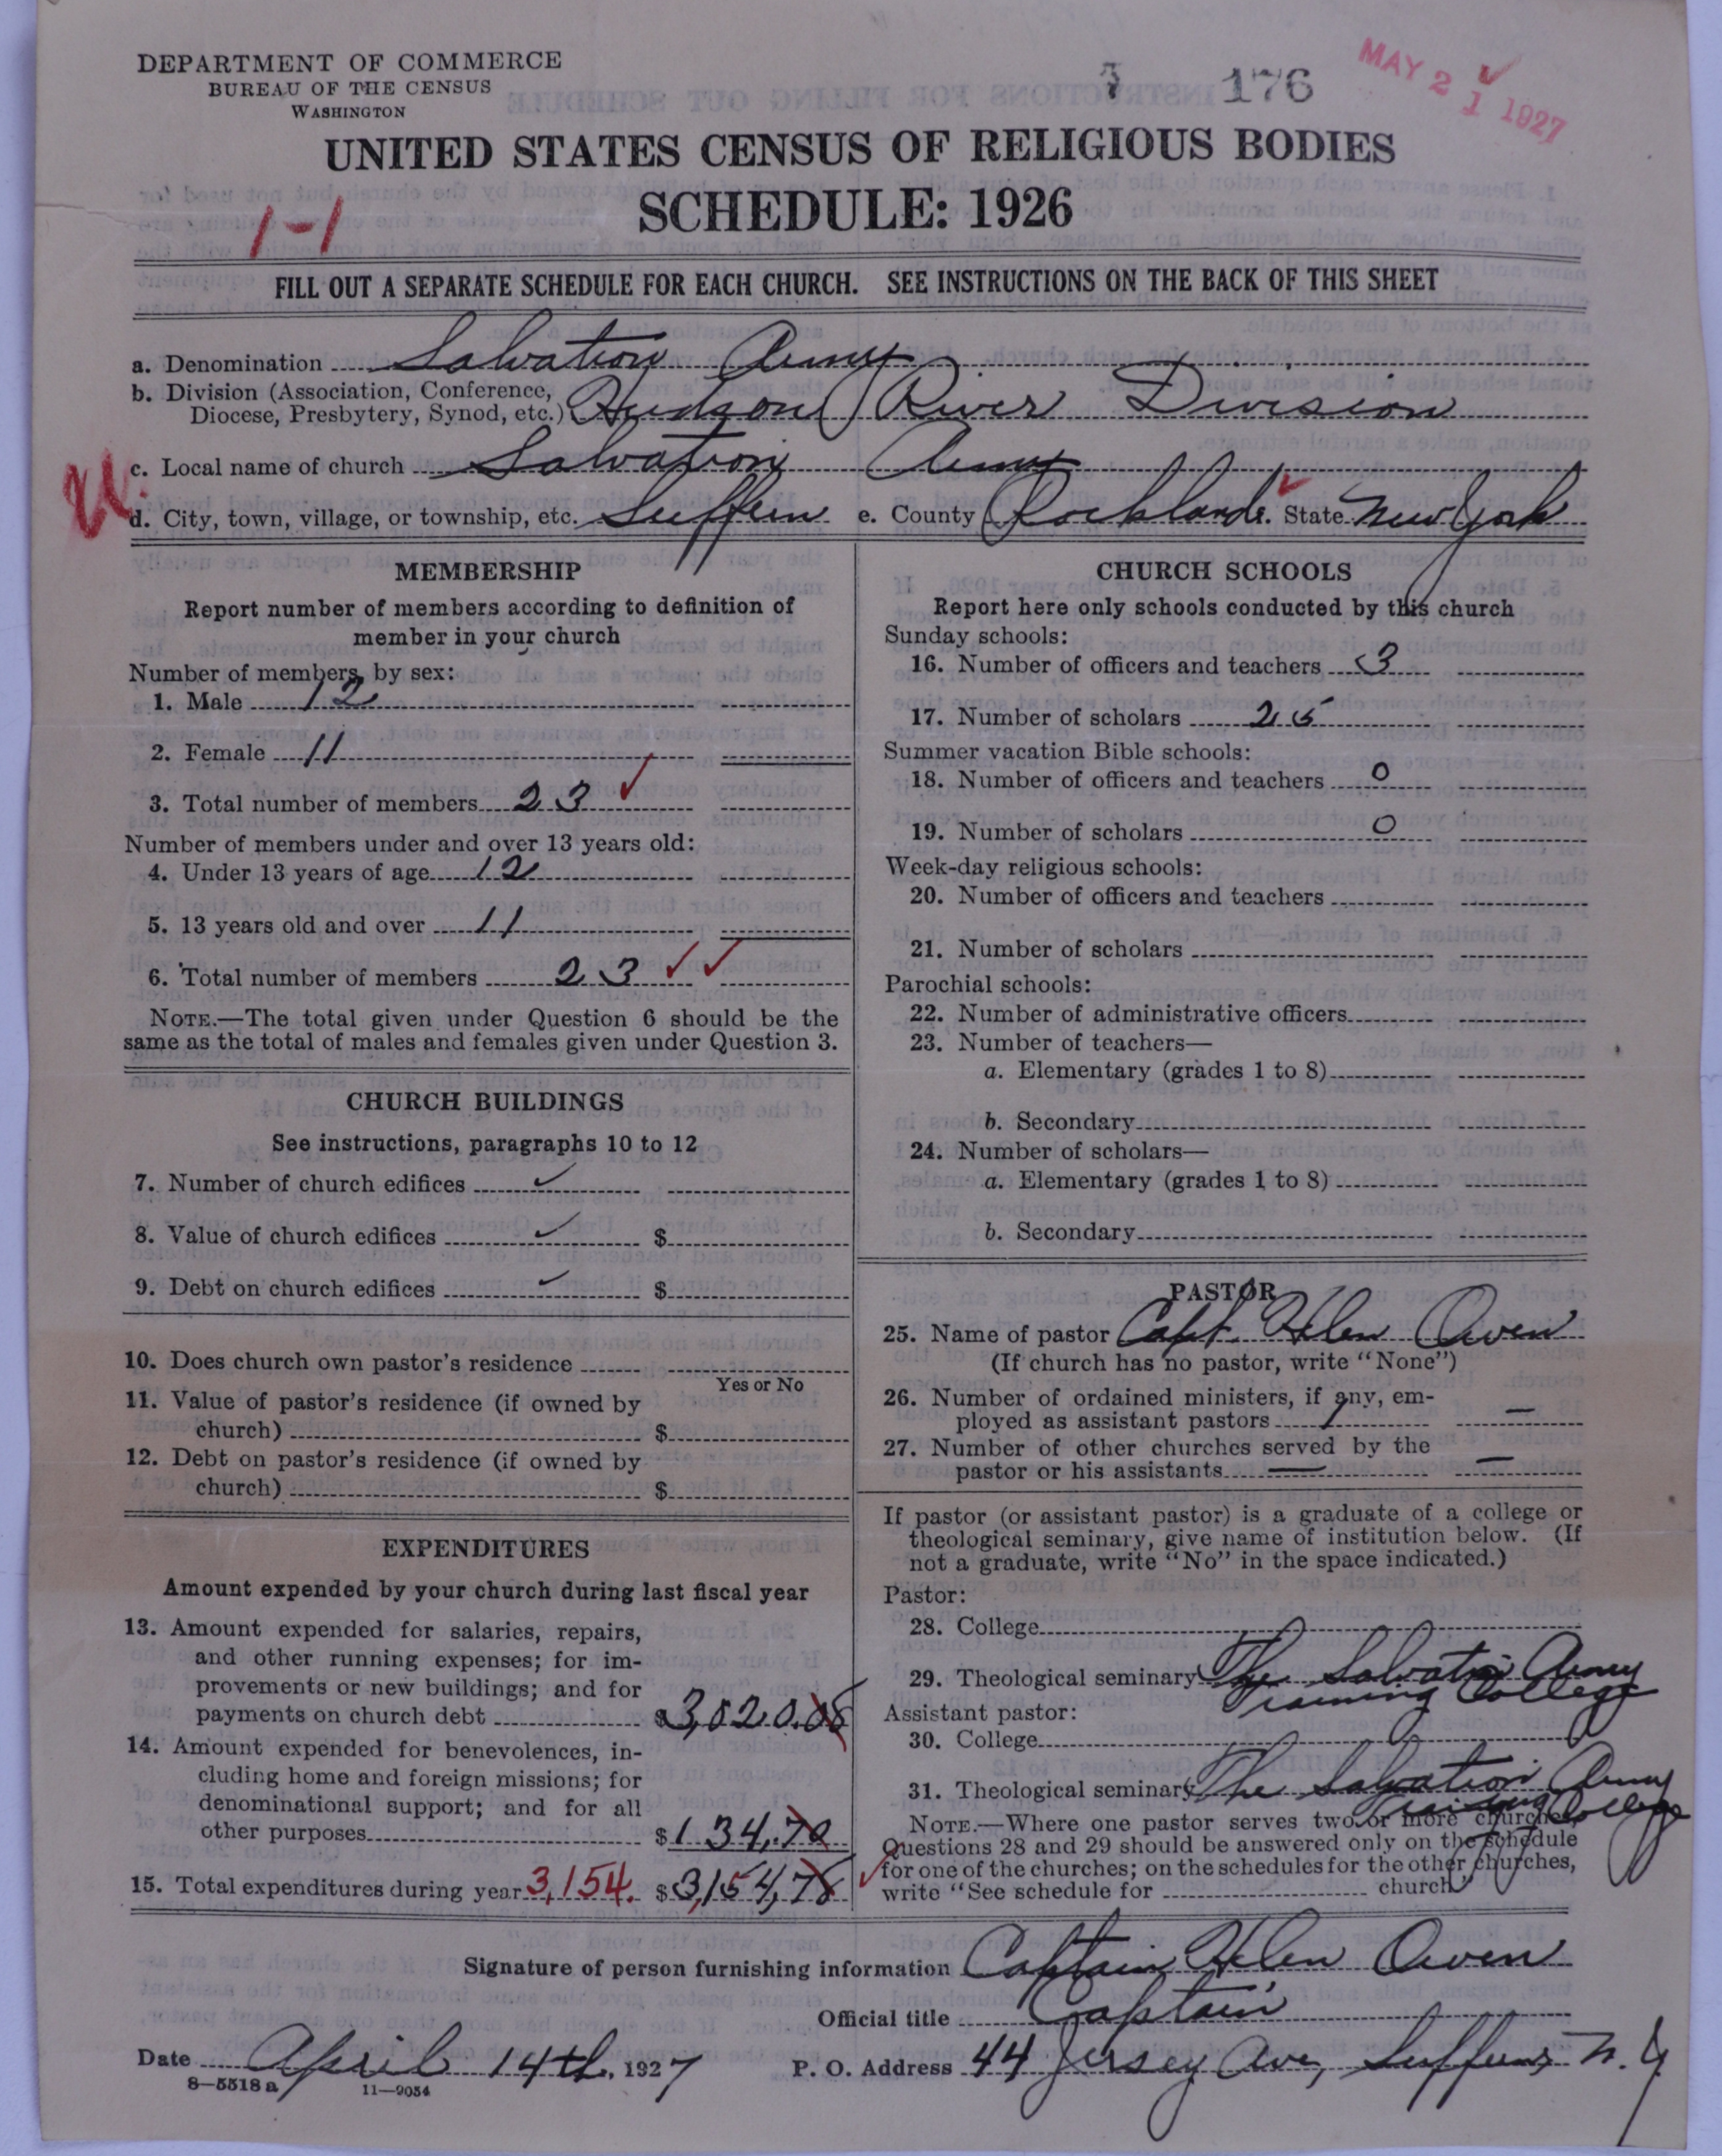 DEPARTMENT OF COMMERCE
BUREAU OF THE CENSUS
WASHINGTON
176
MAY 21 1927
UNITED STATES CENSUS OF RELIGIOUS BODIES
SCHEDULE: 1926
1-1
FILL OUT A SEPARATE SCHEDULE FOR EACH CHURCH. SEE INSTRUCTIONS ON THE BACK OF THIS SHEET
a. Denomination Salvation Army
b. Division (Association, Conference,
Diocese, Presbytery, Synod, etc.) Hudson River Division
c. Local name of church Salvation Army
d. City, town, village, or township, etc. Suffern e. County Rockland. State New York
MEMBERSHIP
Report number of members according to definition of
member in your church
Number of members, by sex:
1. Male 12
2. Female 11
3. Total number of members 23
Number of members under and over 13 years old:
4. Under 13 years of age 12
5. 13 years old and over 11
6. Total number of members 23
NOTE.—The total given under Question 6 should be the
same as the total of males and females given under Question 3.
CHURCH BUILDINGS
See instructions, paragraphs 10 to 12
7. Number of church edifices ✓
8. Value of church edifices ✓ $
9. Debt on church edifices ✓ $
10. Does church own pastor's residence
Yes or No
11. Value of pastor's residence (if owned by
church) $
12. Debt on pastor's residence (if owned by
church) $
EXPENDITURES
Amount expended by your church during last fiscal year
13. Amount expended for salaries, repairs,
and other running expenses; for im-
provements or new buildings; and for
payments on church debt $3,020.08
14. Amount expended for benevolences, in-
cluding home and foreign missions; for
denominational support; and for all
other purposes $134.70
15. Total expenditures during year 3,154. $3,154.78
CHURCH SCHOOLS
Report here only schools conducted by this church
Sunday schools:
16. Number of officers and teachers 3
17. Number of scholars 25
Summer vacation Bible schools:
18. Number of officers and teachers 0
19. Number of scholars 0
Week-day religious schools:
20. Number of officers and teachers
21. Number of scholars
Parochial schools:
22. Number of administrative officers
23. Number of teachers—
a. Elementary (grades 1 to 8)
b. Secondary
24. Number of scholars—
a. Elementary (grades 1 to 8)
b. Secondary
PASTOR
25. Name of pastor Capt. Helen Owen
(If church has no pastor, write "None")
26. Number of ordained ministers, if any, em-
ployed as assistant pastors 1 —
27. Number of other churches served by the
pastor or his assistants — —
If pastor (or assistant pastor) is a graduate of a college or
theological seminary, give name of institution below. (If
not a graduate, write "No" in the space indicated.)
Pastor:
28. College
29. Theological seminary The Salvation Army
Training College
Assistant pastor:
30. College
31. Theological seminary The Salvation Army
Training College
NOTE.—Where one pastor serves two or more churches,
Questions 28 and 29 should be answered only on the schedule
for one of the churches; on the schedules for the other churches,
write "See schedule for church"
Signature of person furnishing information Captain Helen Owen
Official title Captain
Date April 14th, 1927 P. O. Address 44 Jersey Ave, Suffern, N.Y
8—5518 a 11—9054